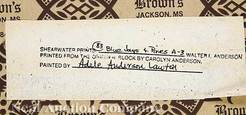 Brown's
JACKSON, MS
Brown's
SHEARWATER PRINTS #8 Blue Jays & Pines A-Z WALTER I. ANDERSON
PRINTED FROM THE ORIGINAL BLOCK BY CAROLYN ANDERSON.
PRINTED BY Adele Anderson Lawton
Neal Auction Company